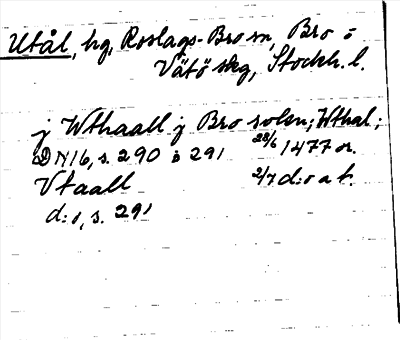 Utål, hg, Roslags-Bro sn, Bro o
Vätö skg, Stockh. l.
j Wthaall j Bro sokn; Wthal;
DN 16, s. 290 o 291 28/6 1477 or.
Vtaall 2/7 d:o a t.
d:o, s. 291